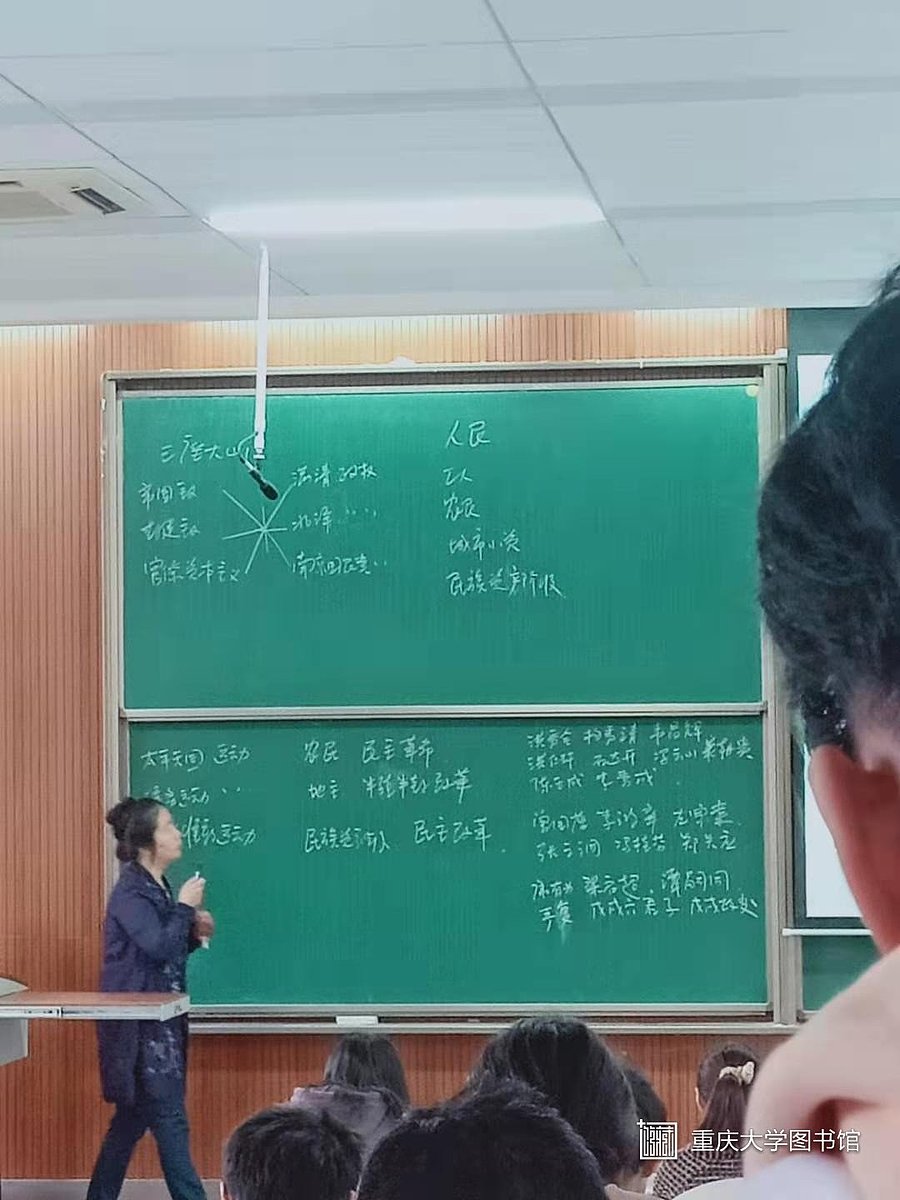 三座大山
满清政权
帝国主义
封建主义
北洋……
官僚资本主义
南京国民党‥
人民
工人
农民
城市小资
民族资产阶级
太平天国 运动
农民 民主革命
洪秀全 杨秀清 韦昌辉
洪仁玕 石达开 冯云山 萧朝贵
陈玉成 李秀成
运动‥
地主 半殖半封 改革
曾国藩 李鸿章 左宗棠
张之洞 冯桂芬 郑关应
维新运动
民族资阶级 民主改革
康有为 梁启超、谭嗣同
严复 戊戌六君子 戊戌政变
重庆大学图书馆